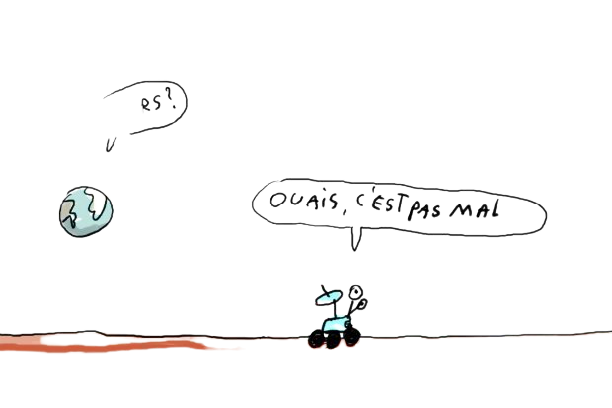 es?
OUAIS, C'EST PAS MAL